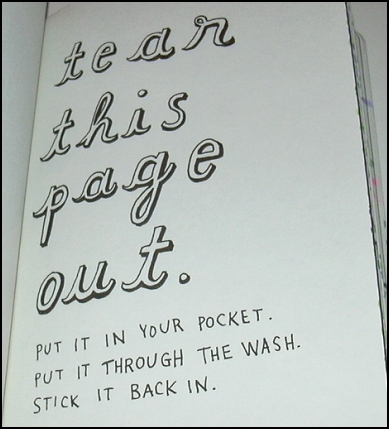 tear
this
page
out.
PUT IT IN YOUR POCKET.
PUT IT THROUGH THE WASH.
STICK IT BACK IN.